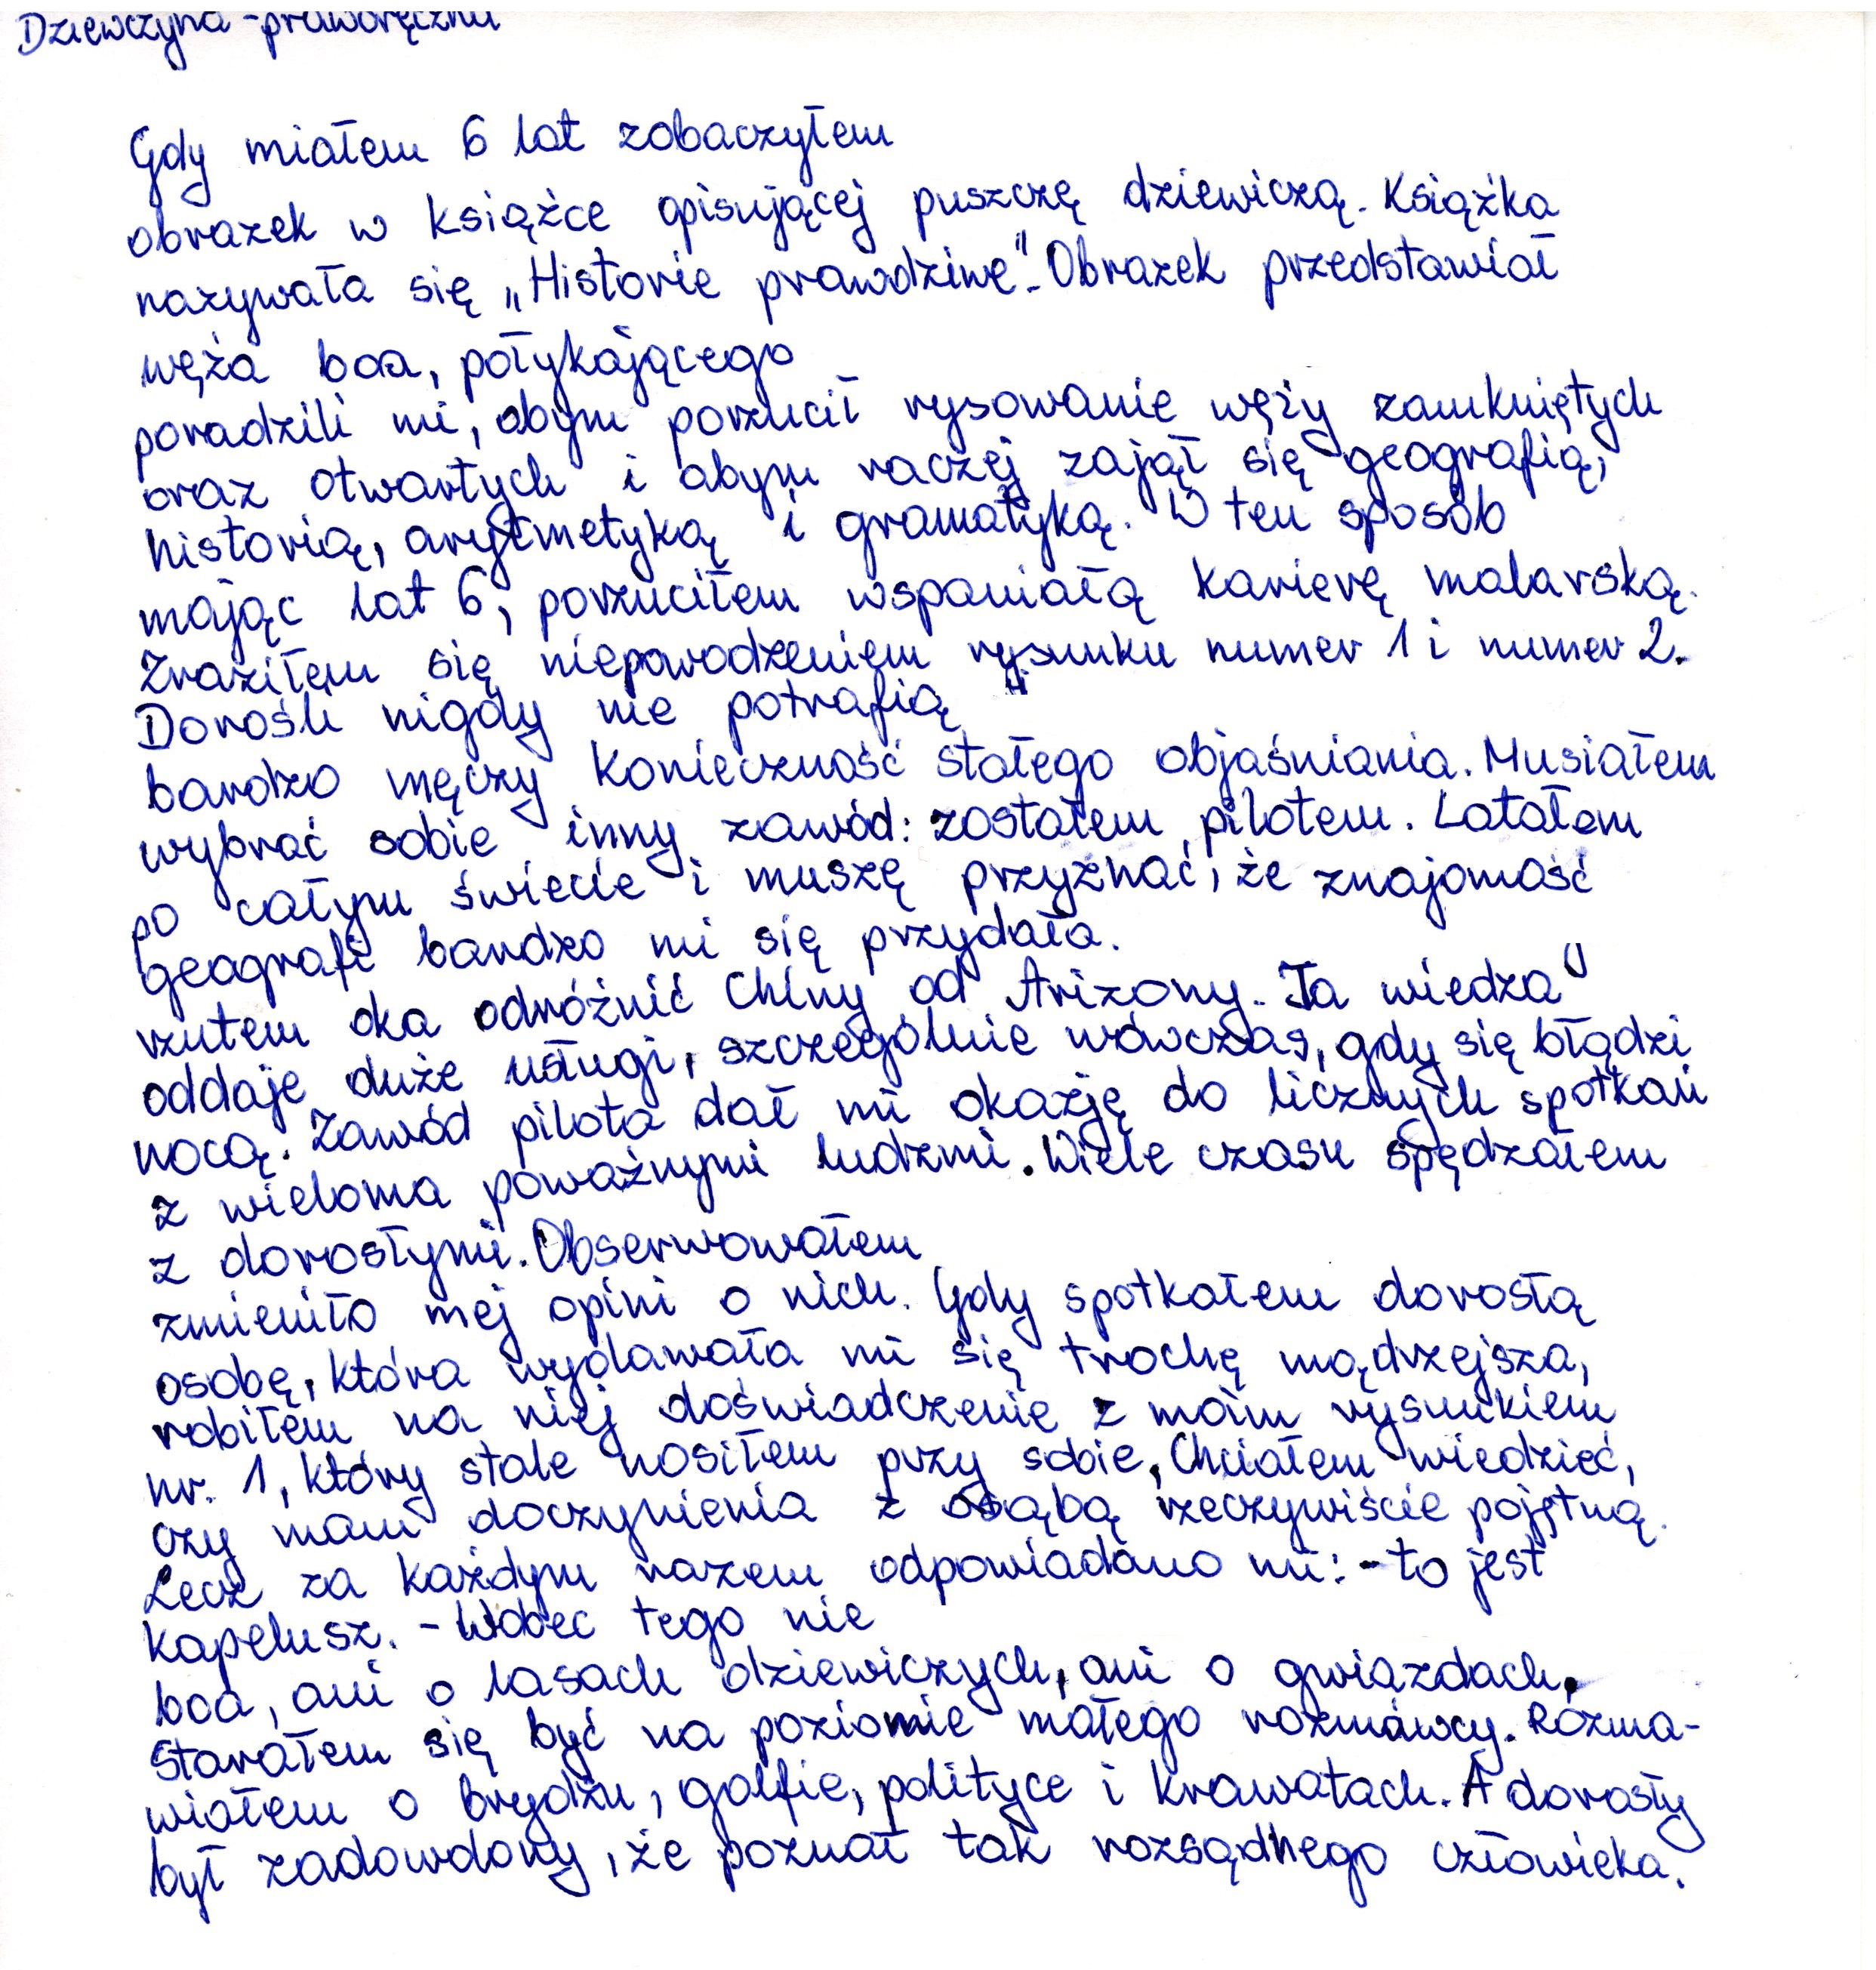 Dziewczyna - praworęczna
Gdy miałem 6 lat zobaczyłem
obrazek w książce opisującej puszczę dziewiczą. Książka
nazywała się „Historie prawdziwe". Obrazek przedstawiał
węża boa, połykającego
poradzili mi, abym porzucił rysowanie węży zamkniętych
oraz otwartych i abym raczej zajął się geografią,
historią, arytmetyką i gramatyką. W ten sposób
mając lat 6, porzuciłem wspaniałą karierę malarską.
Zraziłem się niepowodzeniem rysunku numer 1 i numer 2.
Dorośli nigdy nie potrafią
bardzo męczy konieczność stałego objaśniania. Musiałem
wybrać sobie inny zawód: zostałem pilotem. Latałem
po całym świecie i muszę przyznać, że znajomość
geografi bardzo mi się przydała.
rzutem oka odróżnić Chiny od Arizony. Ta wiedza
oddaje duże usługi, szczególnie wówczas, gdy się błądzi
nocą. Zawód pilota dał mi okazję do licznych spotkań
z wieloma poważnymi ludzmi. Wiele czasu spędzałem
z dorosłymi. Obserwowałem
zmieniło mej opini o nich. Gdy spotkałem dorosłą
osobę, która wydawała mi się trochę mądrzejsza,
robiłem na niej doświadczenie z moim rysunkiem
nr. 1, który stale nosiłem przy sobie, Chciałem wiedzieć,
czy mam doczynienia z osąbą rzeczywiście pojętną.
Lecz za każdym razem odpowiadano mi: - to jest
kapelusz. - Wobec tego nie
boa, ani o lasach dziewiczych, ani o gwiazdach.
Starałem się być na poziomie małego rozmówcy. Rozma-
wiałem o brydżu, golfie, polityce i krawatach. A dorosły
był zadowolony, że poznał tak rozsądnego człowieka.